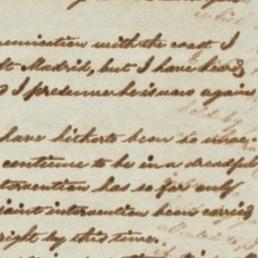 munication with the coast I
at Madrid, but I have heard
I presume he is now again
have hitherto been so unac-
continue to be in a dreadful
tervention has so far only
joint intervention been carried
right by this time.